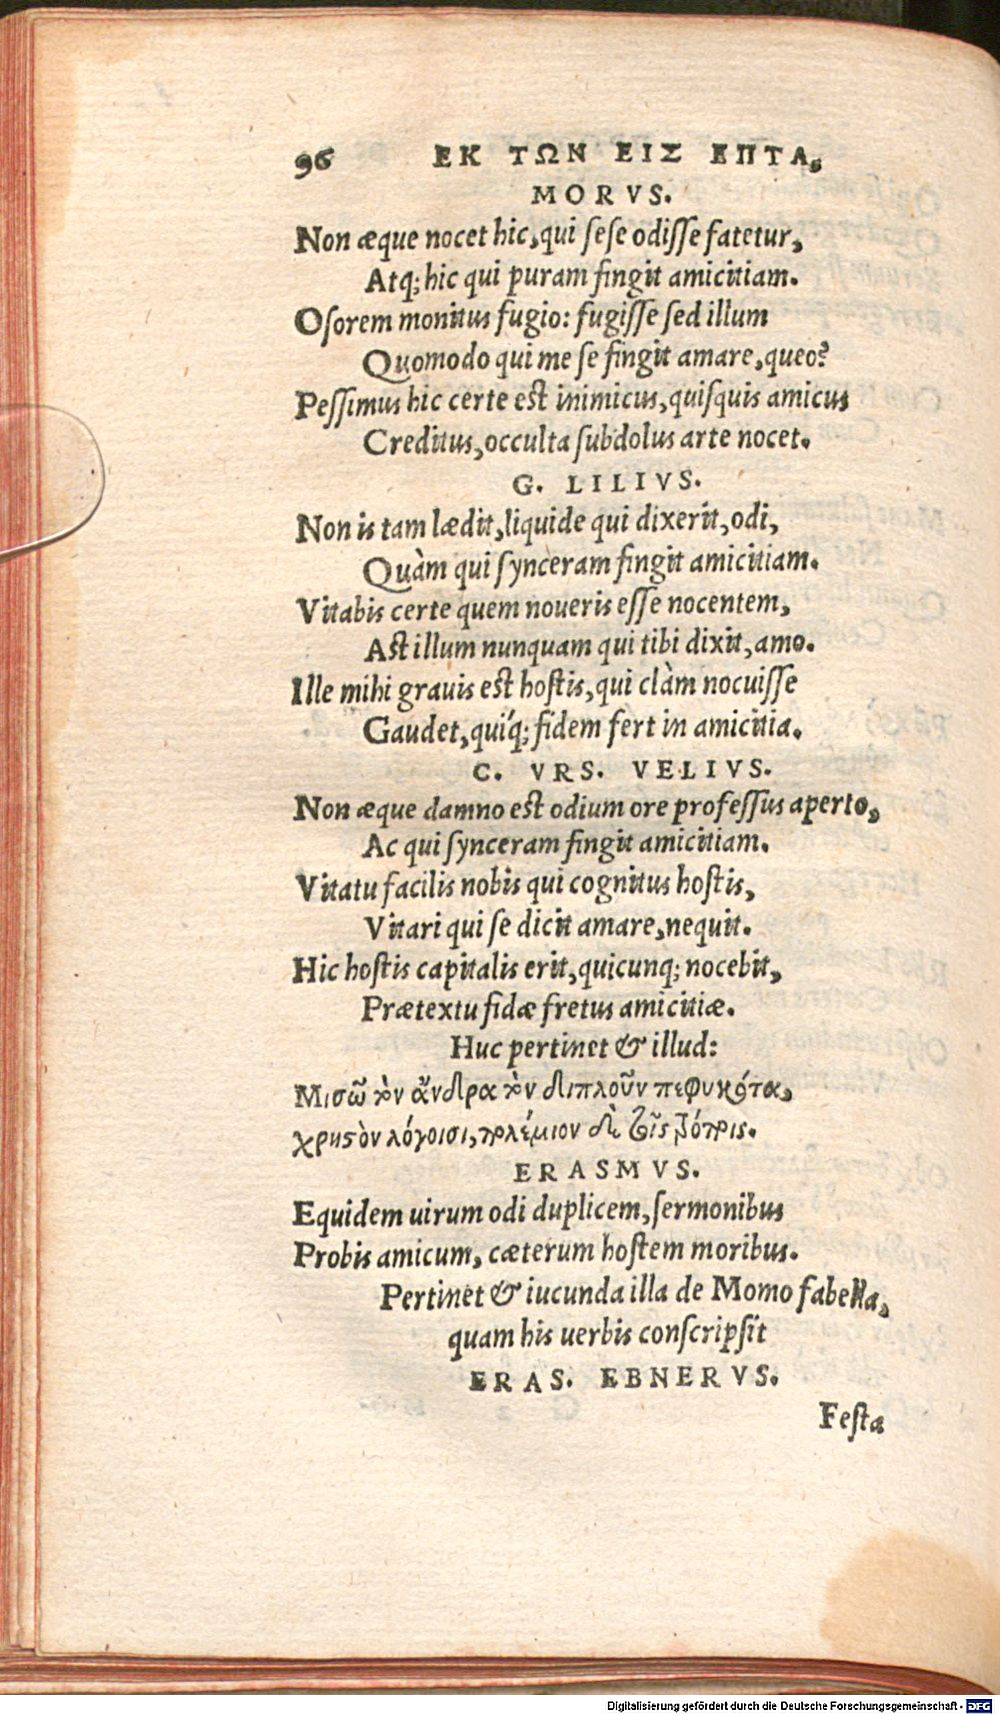 96 ΕΚ ΤΩΝ ΕΙΣ ΕΠΤΑ,
MORVS.
Non æque nocet hic, qui ſeſe odiſſe fatetur,
Atq; hic qui puram fingit amicitiam.
Oſorem monitus fugio: fugiſſe ſed illum
Quomodo qui me ſe fingit amare, queo?
Peſſimus hic certe est inimicus, quiſquis amicus
Creditus, occulta ſubdolus arte nocet.
G. LILIVS.
Non is tam lædit, liquide qui dixerit, odi,
Quàm qui ſynceram fingit amicitiam.
Vitabis certe quem noueris eſſe nocentem,
Ast illum nunquam qui tibi dixit, amo.
Ille mihi grauis est hoſtis, qui clàm nocuiſſe
Gaudet, quíq; fidem fert in amicitia.
C. VRS. VELIVS.
Non æque damno est odium ore profeſſus aperto,
Ac qui ſynceram fingit amicitiam.
Vitatu facilis nobis qui cognitus hoſtis,
Vitari qui ſe dicit amare, nequit.
Hic hoſtis capitalis erit, quicunq; nocebit,
Prætextu fidæ fretus amicitiæ.
Huc pertinet & illud:
Μισῶ τὸν ἄνδρα τὸν διπλοῦν πεφυκότα,
χρηστὸν λόγοισι, πολέμιον δὲ τοῖς τρόποις.
ERASMVS.
Equidem uirum odi duplicem, ſermonibus
Probis amicum, cæterum hoſtem moribus.
Pertinet & iucunda illa de Momo fabella,
quam his uerbis conſcripſit
ERAS. EBNERVS.
Feſta
Digitalisierung gefördert durch die Deutsche Forschungsgemeinschaft - DFG